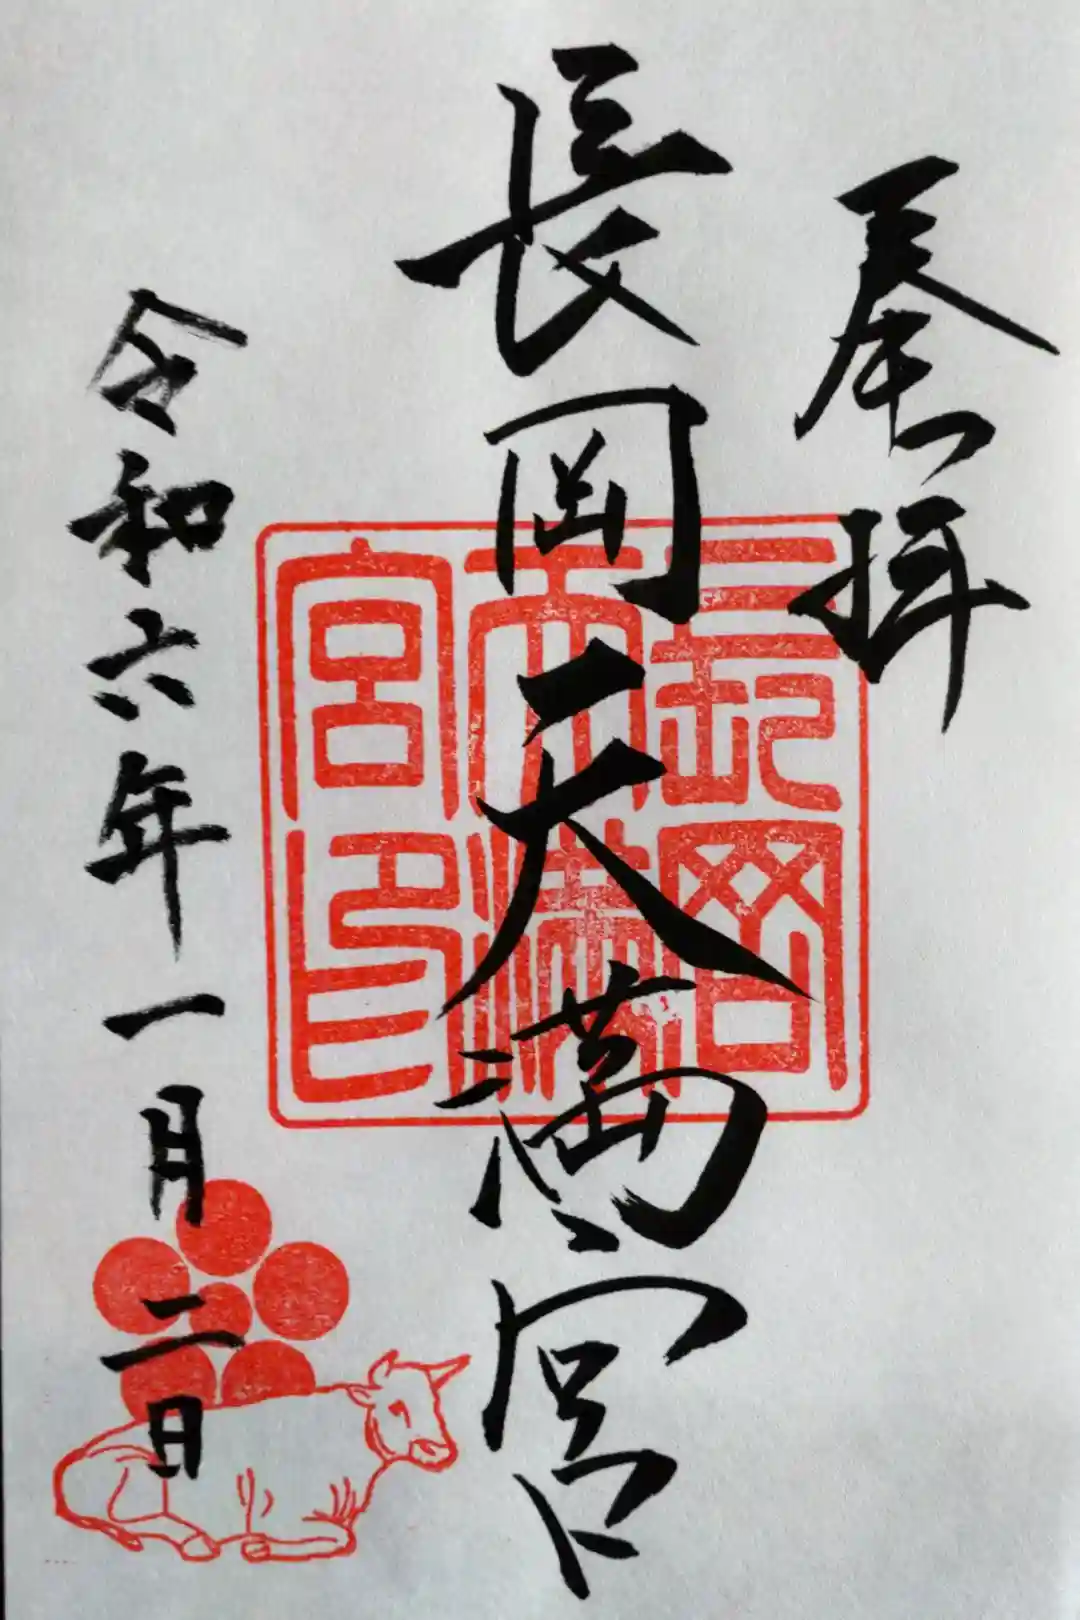 奉拝
長岡天満宮
長岡
天満
宮印
令和六年一月二日